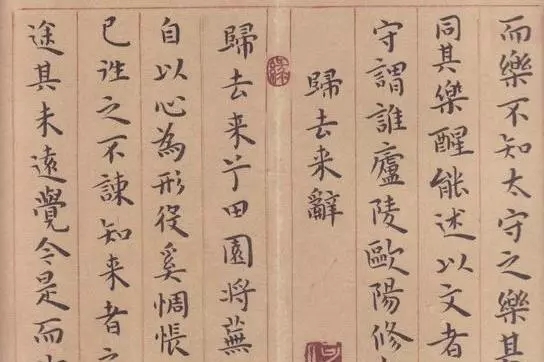 而樂不知太守之樂其
同其樂醒能述以文者
守謂誰廬陵歐陽修
歸去来辭
歸去来兮田園将蕪
自以心為形役奚惆悵
已往之不諫知来者之
途其未遠覺今是而